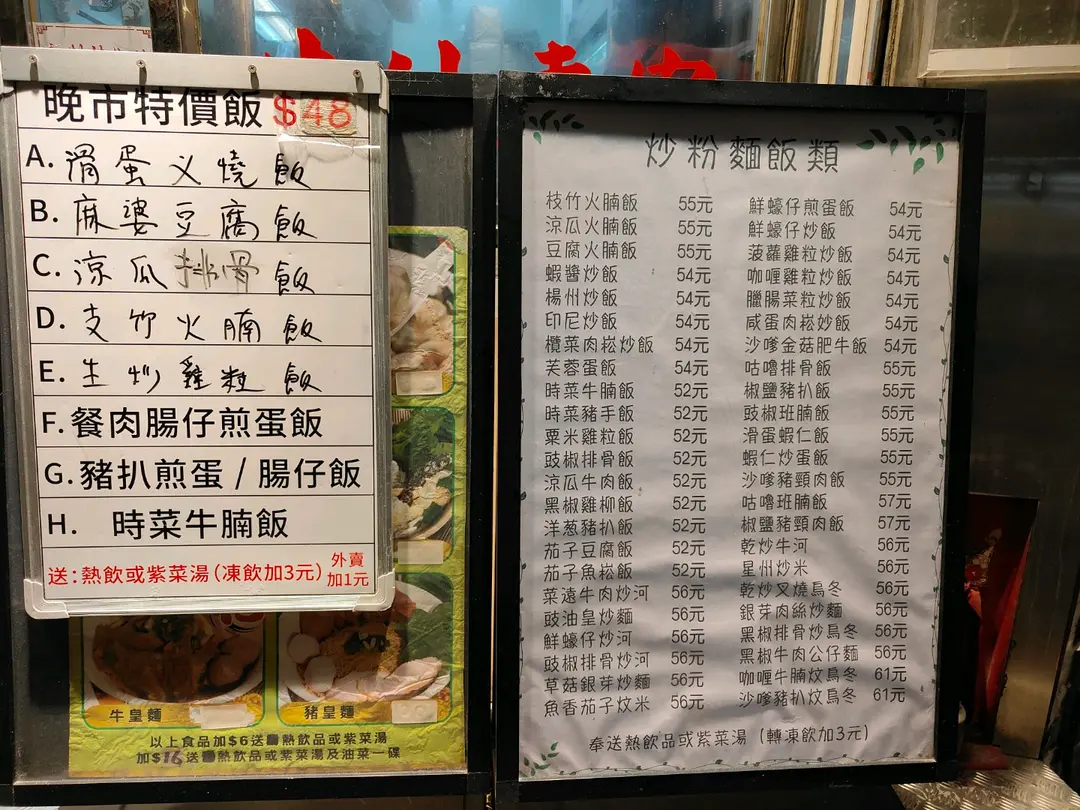 晚市特價飯 $48
A. 滑蛋义燒飯
B. 麻婆豆腐飯
C. 涼瓜排骨飯
D. 支竹火腩飯
E. 生炒雞粒飯
F. 餐肉腸仔煎蛋飯
G. 豬扒煎蛋 / 腸仔飯
H. 時菜牛腩飯
送：熱飲或紫菜湯(凍飲加3元) 外賣加1元
牛皇麵
豬皇麵
以上食品加$6送熱飲品或紫菜湯
加$16送熱飲品或紫菜湯及油菜一碟
炒粉麵飯類
枝竹火腩飯 55元
涼瓜火腩飯 55元
豆腐火腩飯 55元
蝦醬炒飯 54元
楊州炒飯 54元
印尼炒飯 54元
欖菜肉崧炒飯 54元
芙蓉蛋飯 54元
時菜牛腩飯 52元
時菜豬手飯 52元
粟米雞粒飯 52元
豉椒排骨飯 52元
涼瓜牛肉飯 52元
黑椒雞柳飯 52元
洋葱豬扒飯 52元
茄子豆腐飯 52元
茄子魚崧飯 52元
菜遠牛肉炒河 56元
豉油皇炒麵 56元
鮮蠔仔炒河 56元
豉椒排骨炒河 56元
草菇銀芽炒麵 56元
魚香茄子炆米 56元
鮮蠔仔煎蛋飯 54元
鮮蠔仔炒飯 54元
菠蘿雞粒炒飯 54元
咖喱雞粒炒飯 54元
臘腸菜粒炒飯 54元
咸蛋肉崧炒飯 54元
沙嗲金菇肥牛飯 54元
咕嚕排骨飯 55元
椒鹽豬扒飯 55元
豉椒班腩飯 55元
滑蛋蝦仁飯 55元
蝦仁炒蛋飯 55元
沙嗲豬頸肉飯 55元
咕嚕班腩飯 57元
椒鹽豬頸肉飯 57元
乾炒牛河 56元
星州炒米 56元
乾炒叉燒烏冬 56元
銀芽肉絲炒麵 56元
黑椒排骨炒烏冬 56元
黑椒牛肉公仔麵 56元
咖喱牛腩炆烏冬 61元
沙嗲豬扒炆烏冬 61元
奉送熱飲品或紫菜湯 (轉凍飲加3元)